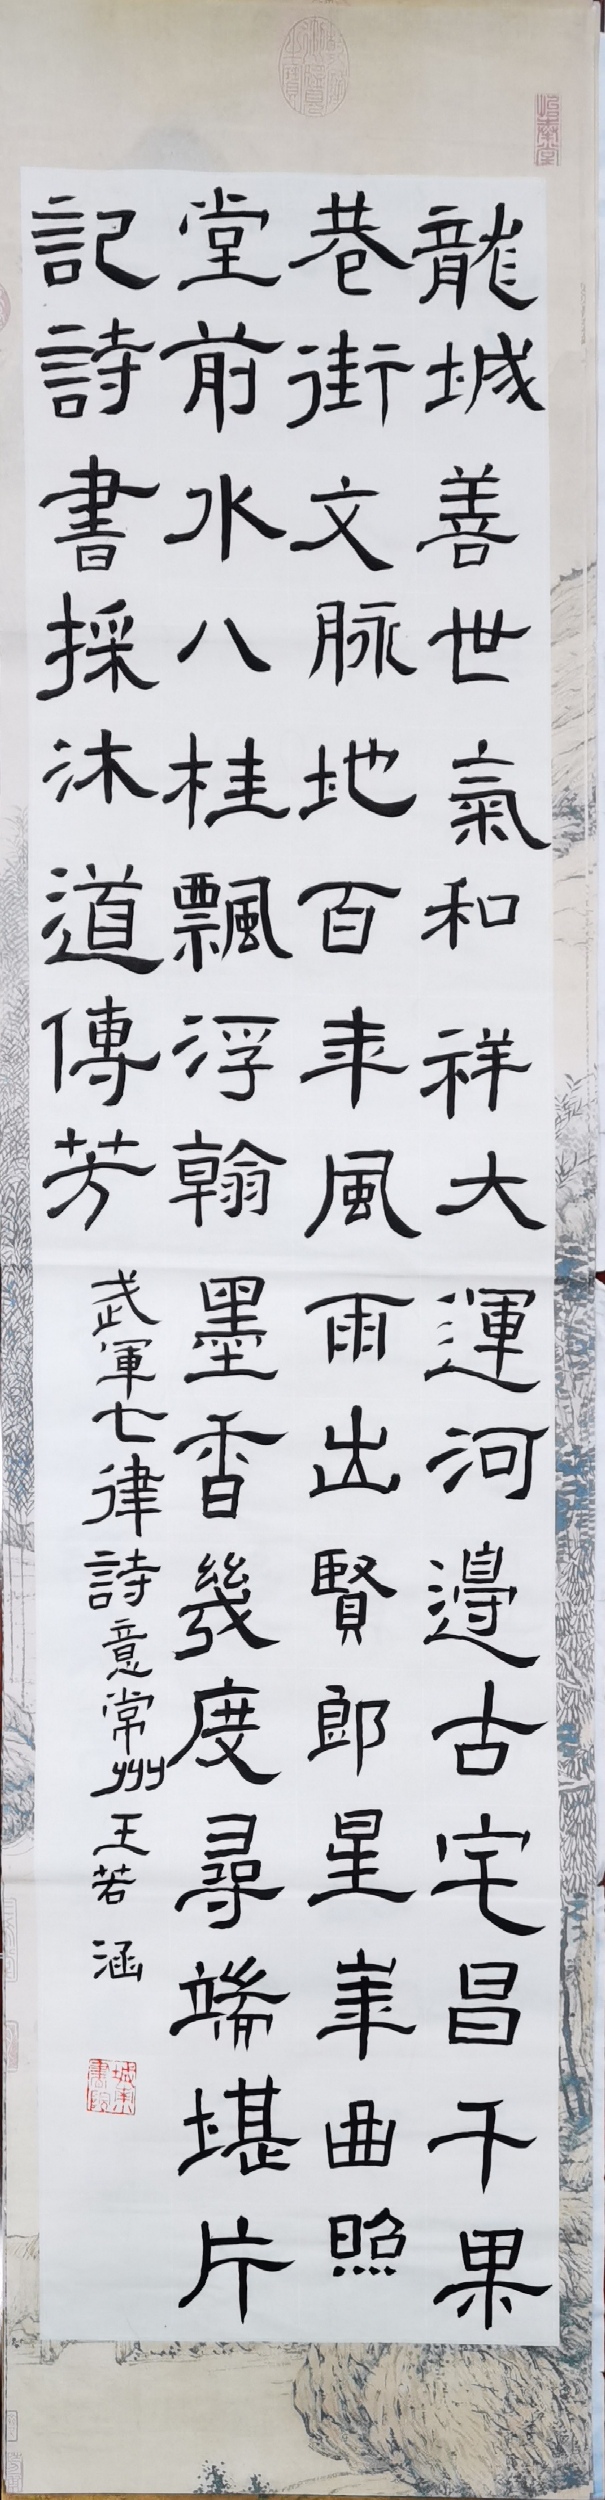 龍城善世氣和祥大運河邊古宅昌千果
巷街文脉地百年風雨出賢郎星峯曲照
堂前水八桂飄浮翰墨香幾度尋端堪片
記詩書採沐道傳芳
武軍七律詩意常州王若涵